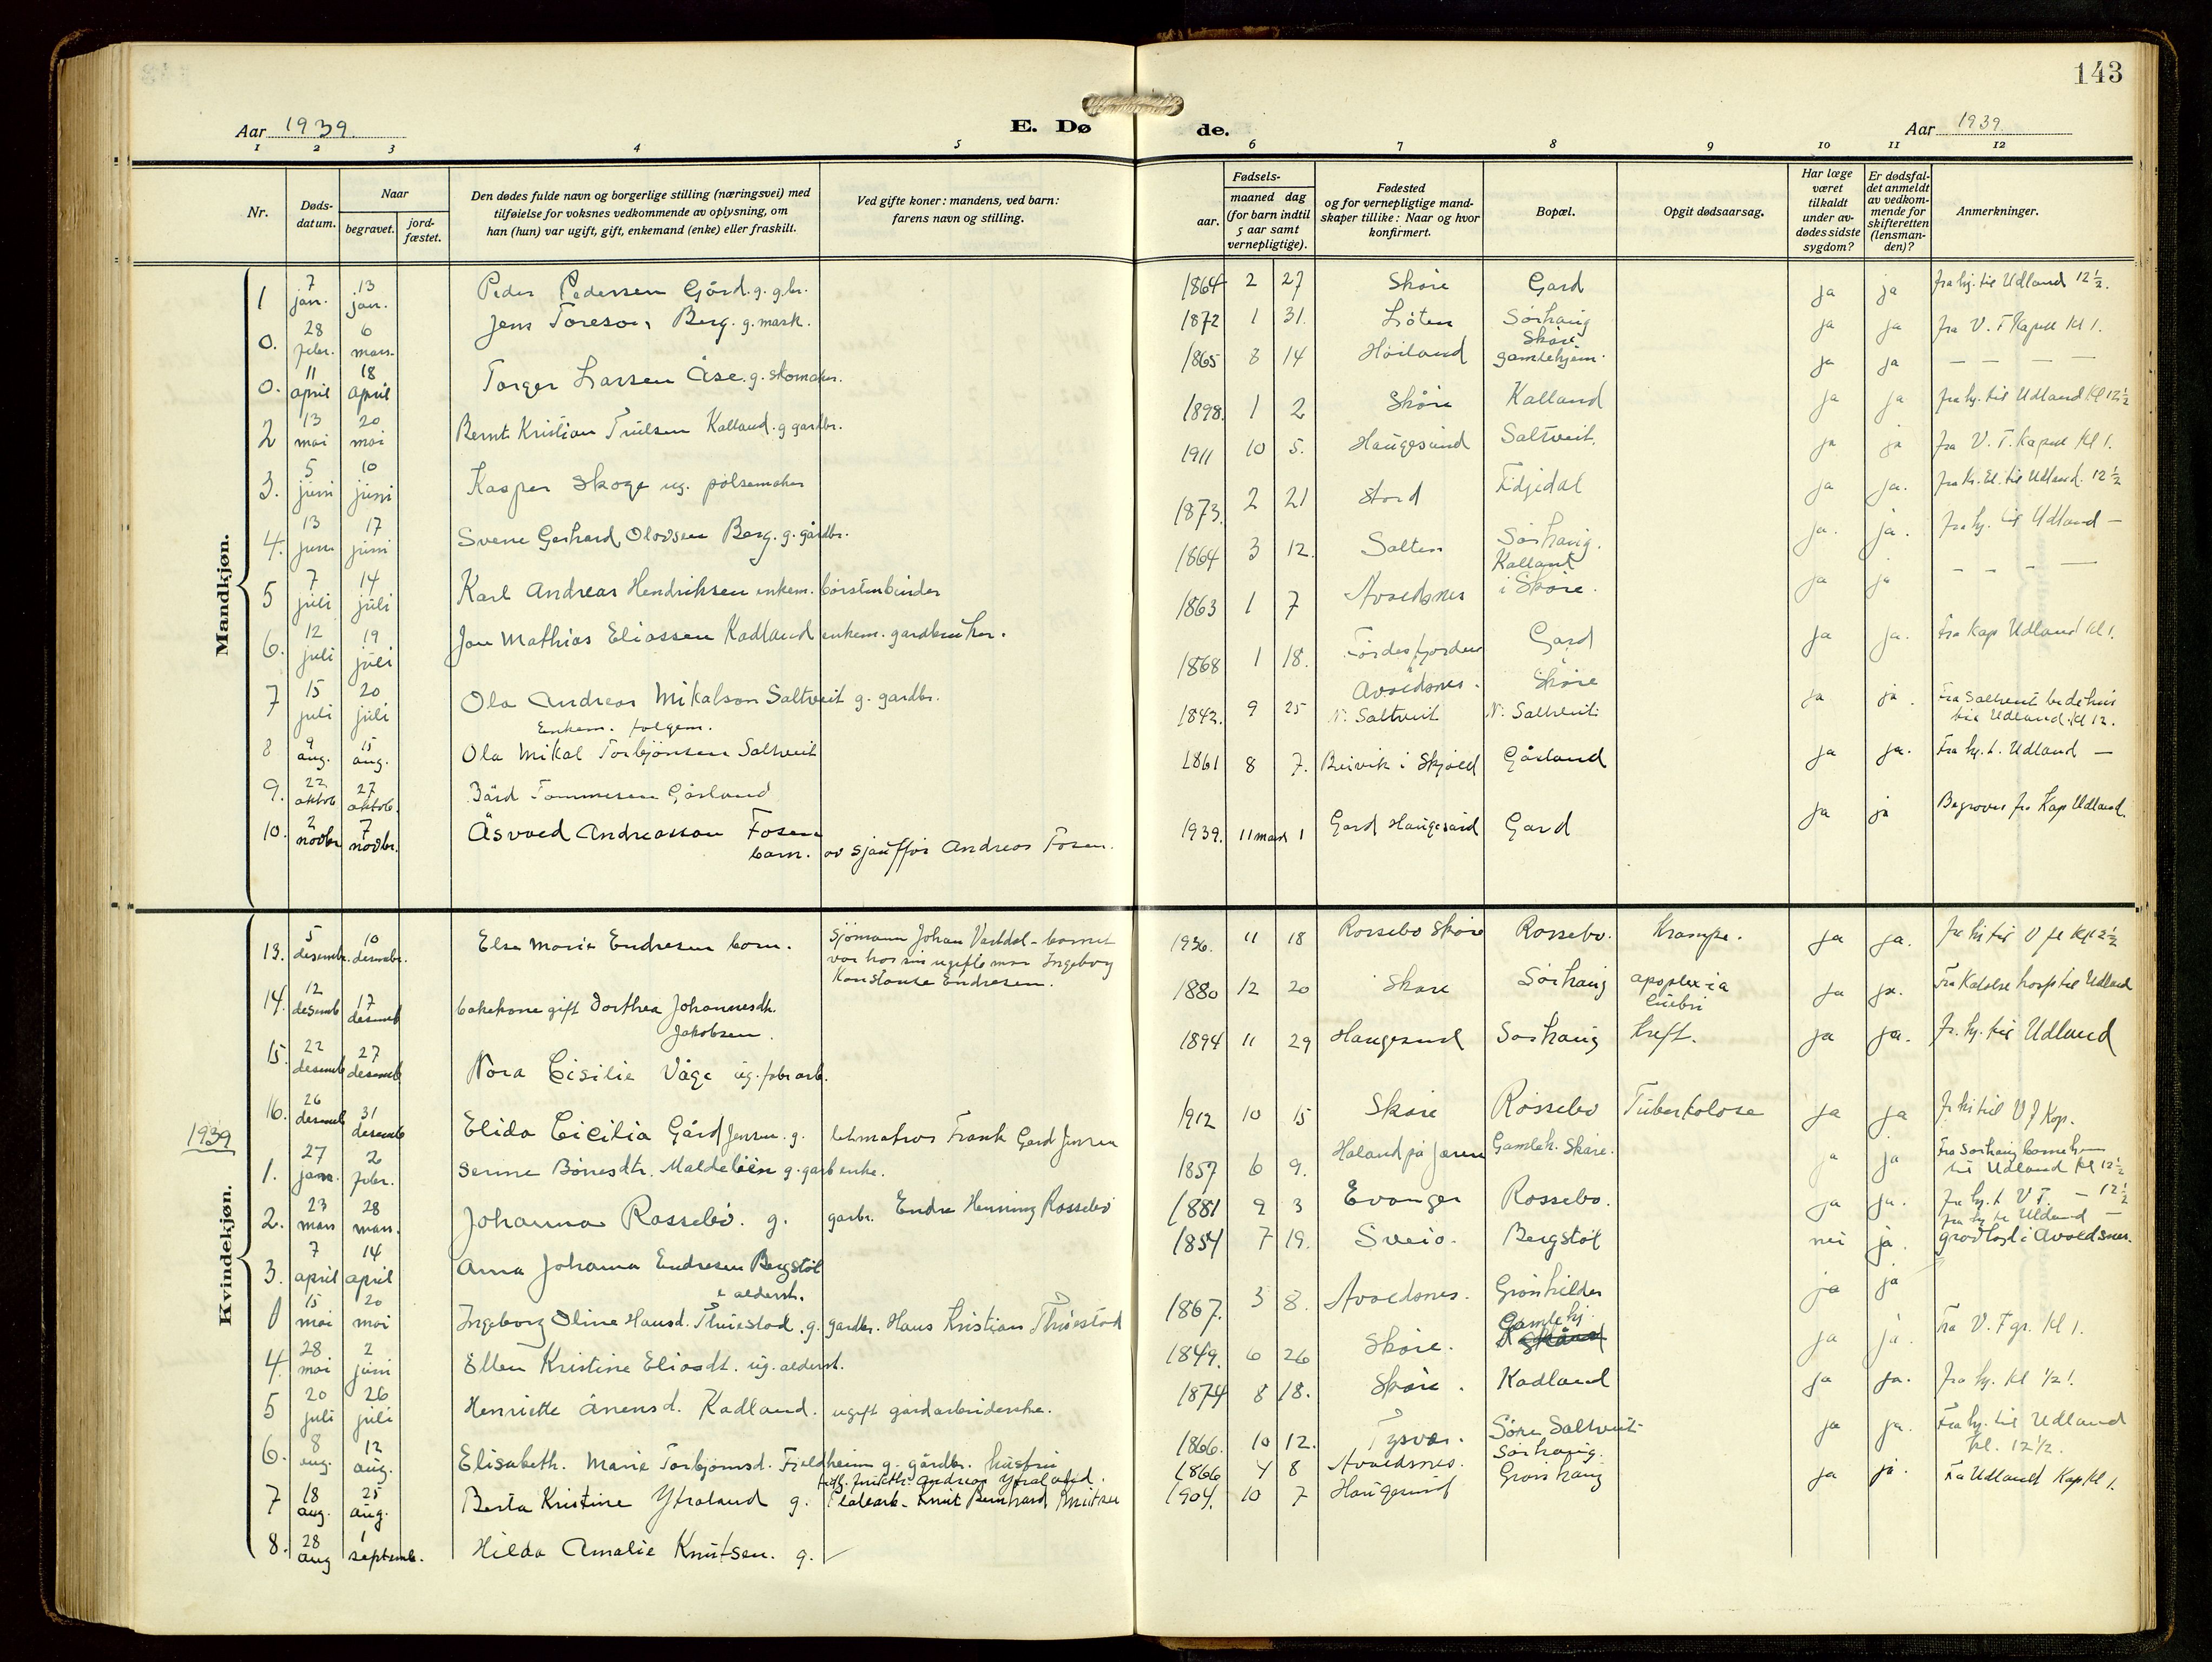 143
Aar 1939.
E. Dø
de.
Aar 1939.
1 2 3 4 5 6 7 8 9 10 11 12
Nr.
Døds-
datum.
Naar
begravet.
jord-
fæstet.
Den dødes fulde navn og borgerlige stilling (næringsvei) med
tilføielse for voksnes vedkommende av oplysning, om
han (hun) var ugift, gift, enkemand (enke) eller fraskilt.
Ved gifte koner: mandens, ved barn:
farens navn og stilling.
Fødsels-
aar.
maaned dag
(for barn indtil
5 aar samt
vernepligtige).
Fødested
og for vernepligtige mand-
skaper tillike: Naar og hvor
konfirmert.
Bopæl.
Opgit dødsaarsag.
Har læge
været
tilkaldt
under av-
dødes sidste
sygdom?
Er dødsfal-
det anmeldt
av vedkom-
mende for
skifteretten
(lensman-
den)?
Anmerkninger.
Mandkjøn.
1 7 jan. 13 jan. Peder Pedersen Gård. g. gbr. 1864 2 27 Skåre Gard ja ja fra hj. til Udland 12½.
0. 28 febr. 6 mars. Jens Toreson Berg. g. mask. 1872 1 31. Löten Sørhaug ja ja fra V. T Kapell Kl 1.
0. 11 april 18 april Torger Larsen Åse. g. skomaker. 1865 8 14 Höiland Skåre gamlehjem. ja ja — — —
2 13 mai 20 mai Bernt Kristian Truilsen Kalland. g gardbr. 1898. 1 2 Skåre Kalland ja ja fra hj. til Udland Kl 12½
3. 5 juni 10 juni Kasper Skoge ug. pølsemaker 1911 10 5. Haugesund Saltveit. ja ja fra V. T. Kapell Kl 1.
4. 13 juni 17 juni Svene Gerhard Olavsen Berg. g. gårdbr. 1873. 2 21 Stord ja ja. til Udland. 12½
5 7 juli 14 juli Karl Andreas Hendriksen enkem. børstenbinder 1864 3 12. Salten Sørhaug. ja. ja. fra hj. til Udland —
6. 12 juli 19 juli Jon Mathias Eliassen Kadland enkem. gardbruker. 1863 1 7 Avaldsnes Kalland i Skåre. ja ja — — —
7 15 juli 20 juli Ola Andreas Mikalson Saltveit g. gardbr. 1868 1 18. Førdesfjorden Avaldsnes. Gard Skåre ja ja. Fra Kap Udland Kl 1.
Enkem. folgem.
8 9 aug. 15 aug. Ola Mikal Torbjönsen Saltveit 1842. 9 25 N. Saltveit N. Saltveit ja ja. Fra Saltveit bedehus til Udland. Kl 12.
9. 22 oktob 27 oktob. Bård Tommesen Gåsland 1861 8 7. i Skjold Gåsland ja ja. Fra hj. t. Udland —
10. 2 novbr 7 novbr. Åsvald Andreassen Fosen 1939. 11 mars 1 Gard Haugesund Gard ja ja Begraves fra Kap Udland.
barn. av sjauffør Andreas Fosen.
13. 5 desembr. 10 desembr. Else Marie Endresen barn. Sjømann Johan Vardal - barnet 1936. 11 18 Rossebø Skåre Rossebø. Krampe. ja ja.
var hos sin ugifte mor Ingeborg
Konstanse Endresen.
14. 12 desemb 17 desemb bakekone gift Dorthea Johannesdtr. 1880 12 20 Skåre Sørhaug apoplexia ja ja. til Udland
Jakobsen.
15. 22 desemb 27 desemb Nora Cisilie Våge ug. fabr arb. 1894 11 29 Haugesund Sørhaug kreft. ja ja. fr. hj. til Udland
1939
16. 26 desemb 31 desemb Elida Cicilia Gård Jensen. g. Frank Gard Jensen 1912 10 15 Skåre Rossebø Tuberkolose ja ja
Kvindekjøn.
1. 27 jan. 2 febr. Serine Bönesdtr. g. gardb enke. 1857 6 9. Håland på Jæren Gamleh. Skåre. ja ja til Udland Kl 12½
2. 23 mars 28 mars. Johanna Rossebö. g. garbr. Endre Henning Rossebö 1881 2 3 Evanger Rossebø. ja ja. fra hj. t. V T. — 12½
3. 7 april 14 april Anna Johanna Endresen Bergstöl 1854 7 19. Sveio. Bergstøl nei ja. fra hj. til Udland —
e alderst.
gravlagt i Avaldsnes.
0 15 mai 20 mai Ingeborg Oline Hansd. Thuestad. g. gardbr. Hans Kristian Thuestad 1867. 3 8. Avaldsnes. Grønhilder ja ja
4. 28 mai 2 juni Ellen Kristine Eliasdt. ug. alderst. 1849. 6 26 Skåre. Gamlehj. ja ja. Fra V. T gr. Kl 1.
5 20 juli 26 juli Henriette Ånensd. Kadland. ugift gårdarbeiderske. 1874 8 18. Skåre. Kadland ja ja. fra hj. Kl ½1.
6. 8 aug. 12 aug. Elisabeth. Marie Torbjørnsd. Fjeldheim g. gårdbr. husfru 1866. 10 12. Tysvær. Söre Saltveit ja ja. Fra hj. til Udland
kl. 12½.
7 18 aug. 25 aug. Berta Kristine Ytreland g. Andreas Ytreland. 1866 4 8 Avaldsnes. Sørhaug.
8. 28 aug 1 septemb. Hilda Amalie Knutsen. g. Knut Bernhard Knutsen 1904. 10 7 Haugesund Grønhaug ja ja. Fra Udland Kap Kl 1.